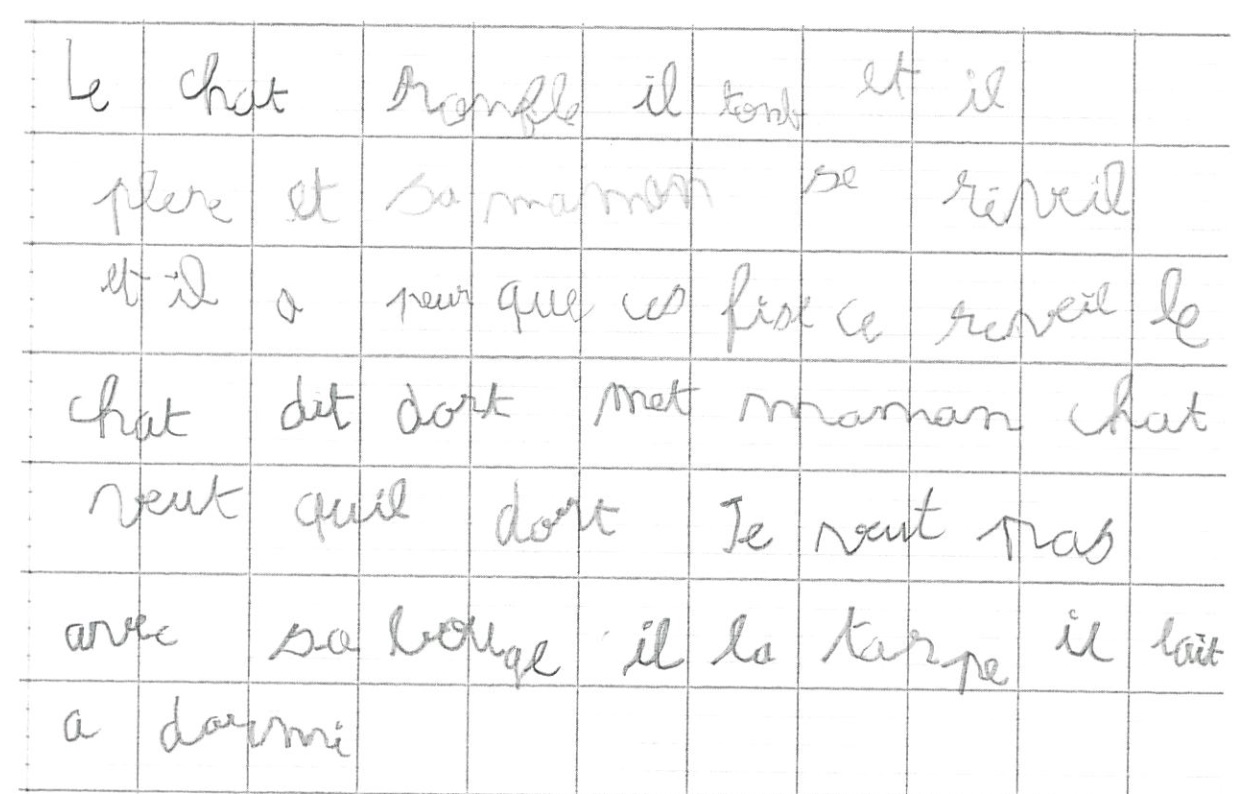 Le chat ronfle il tonb et il
plere et sa maman se réveil
et il a peur que ces fise ce reveil le
chat dit dort met maman chat
veut quil dort Je veut pas
avec sa bouge il la tarpe il lait
a dormi